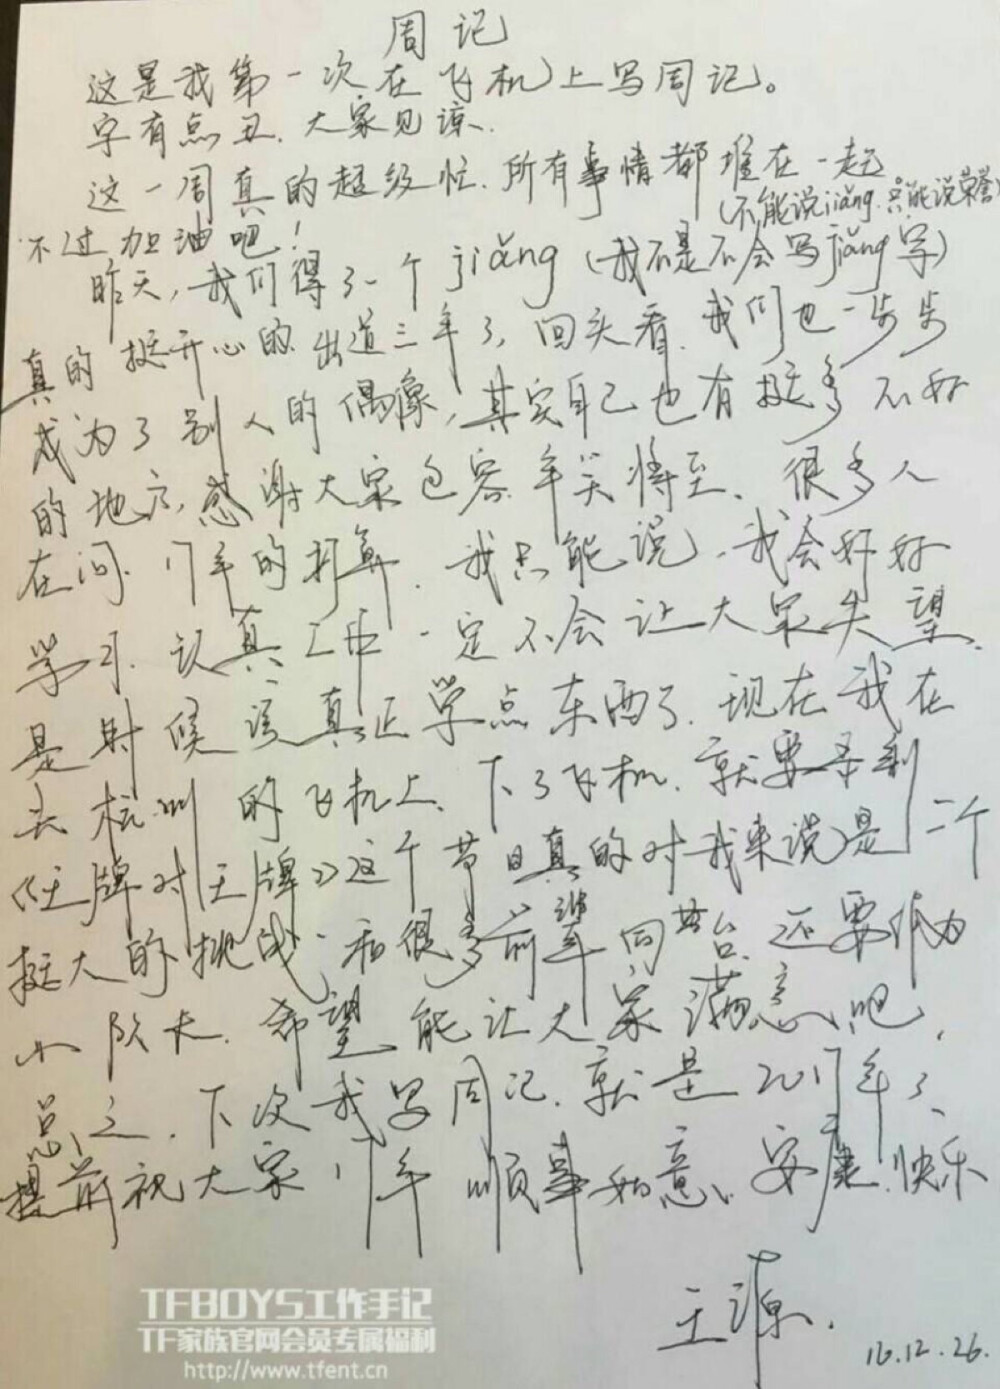 周记
这是我第一次在飞机上写周记。
字有点丑.大家见谅.
这一周真的超级忙.所有事情都堆在一起
(不能说jiǎng.只能说荣誉)
不过加油吧!
昨天,我们得了一个jiǎng(我不是不会写jiǎng字)
真的挺开心的.出道三年了,回头看.我们也一步步
成为了别人的偶像,其实自己也有挺多不好
的地方,感谢大家包容.年关将至、很多人
在问.17年的打算.我只能说,我会好好
学习.认真工作.一定不会让大家失望.
是时候该真正学点东西了.现在我在
去杭州的飞机上.下了飞机.就要录制
《王牌对王牌》这个节目真的对我来说是一个
挺大的挑战.和很多前辈同台.还要作为
小队长.希望能让大家满意吧,
总之.下次我写周记.就是2017年了、
提前祝大家17年顺事如意、安康.快乐
王源.
16.12.26.
TFBOYS工作手记
TF家族官网会员专属福利
http://www.tfent.cn